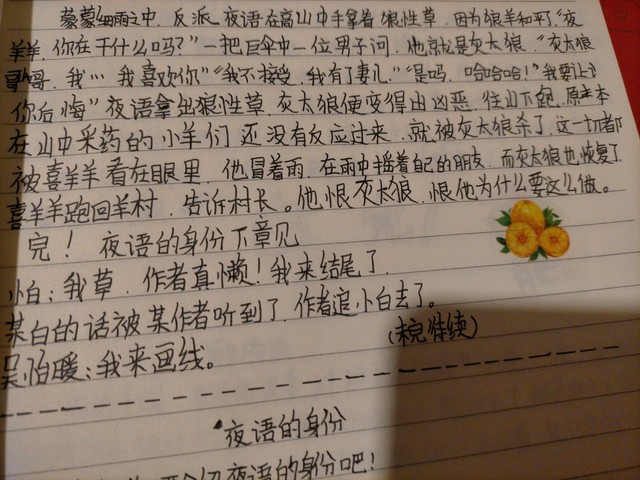 蒙蒙细雨之中，反派夜语在高山中手拿着狼性草，因为狼羊和平了，“夜
羊羊，你在干什么吗？”一把巨伞中一位男子问，他就是灰太狼，“灰太狼
哥哥，我…我喜欢你”“我不接受，我有了妻儿”“是吗，哈哈哈！”我要让
你后悔”夜语拿出狼性草，灰太狼便变得凶恶，往山下跑，原本
在山中采药的小羊们还没有反应过来，就被灰太狼杀了，这一切都
被喜羊羊看在眼里，他冒着雨，在雨中摇着自己的朋友，而灰太狼也恢复了
喜羊羊跑回羊村，告诉村长。他恨灰太狼，恨他为什么要这么做。
完！ 夜语的身份下章见
小白：我草，作者真懒！我来结尾了，
某白的话被某作者听到了，作者追小白去了。
（未完，待续）
吴怡暖：我来画线。
夜语的身份
夜语的身份吧！